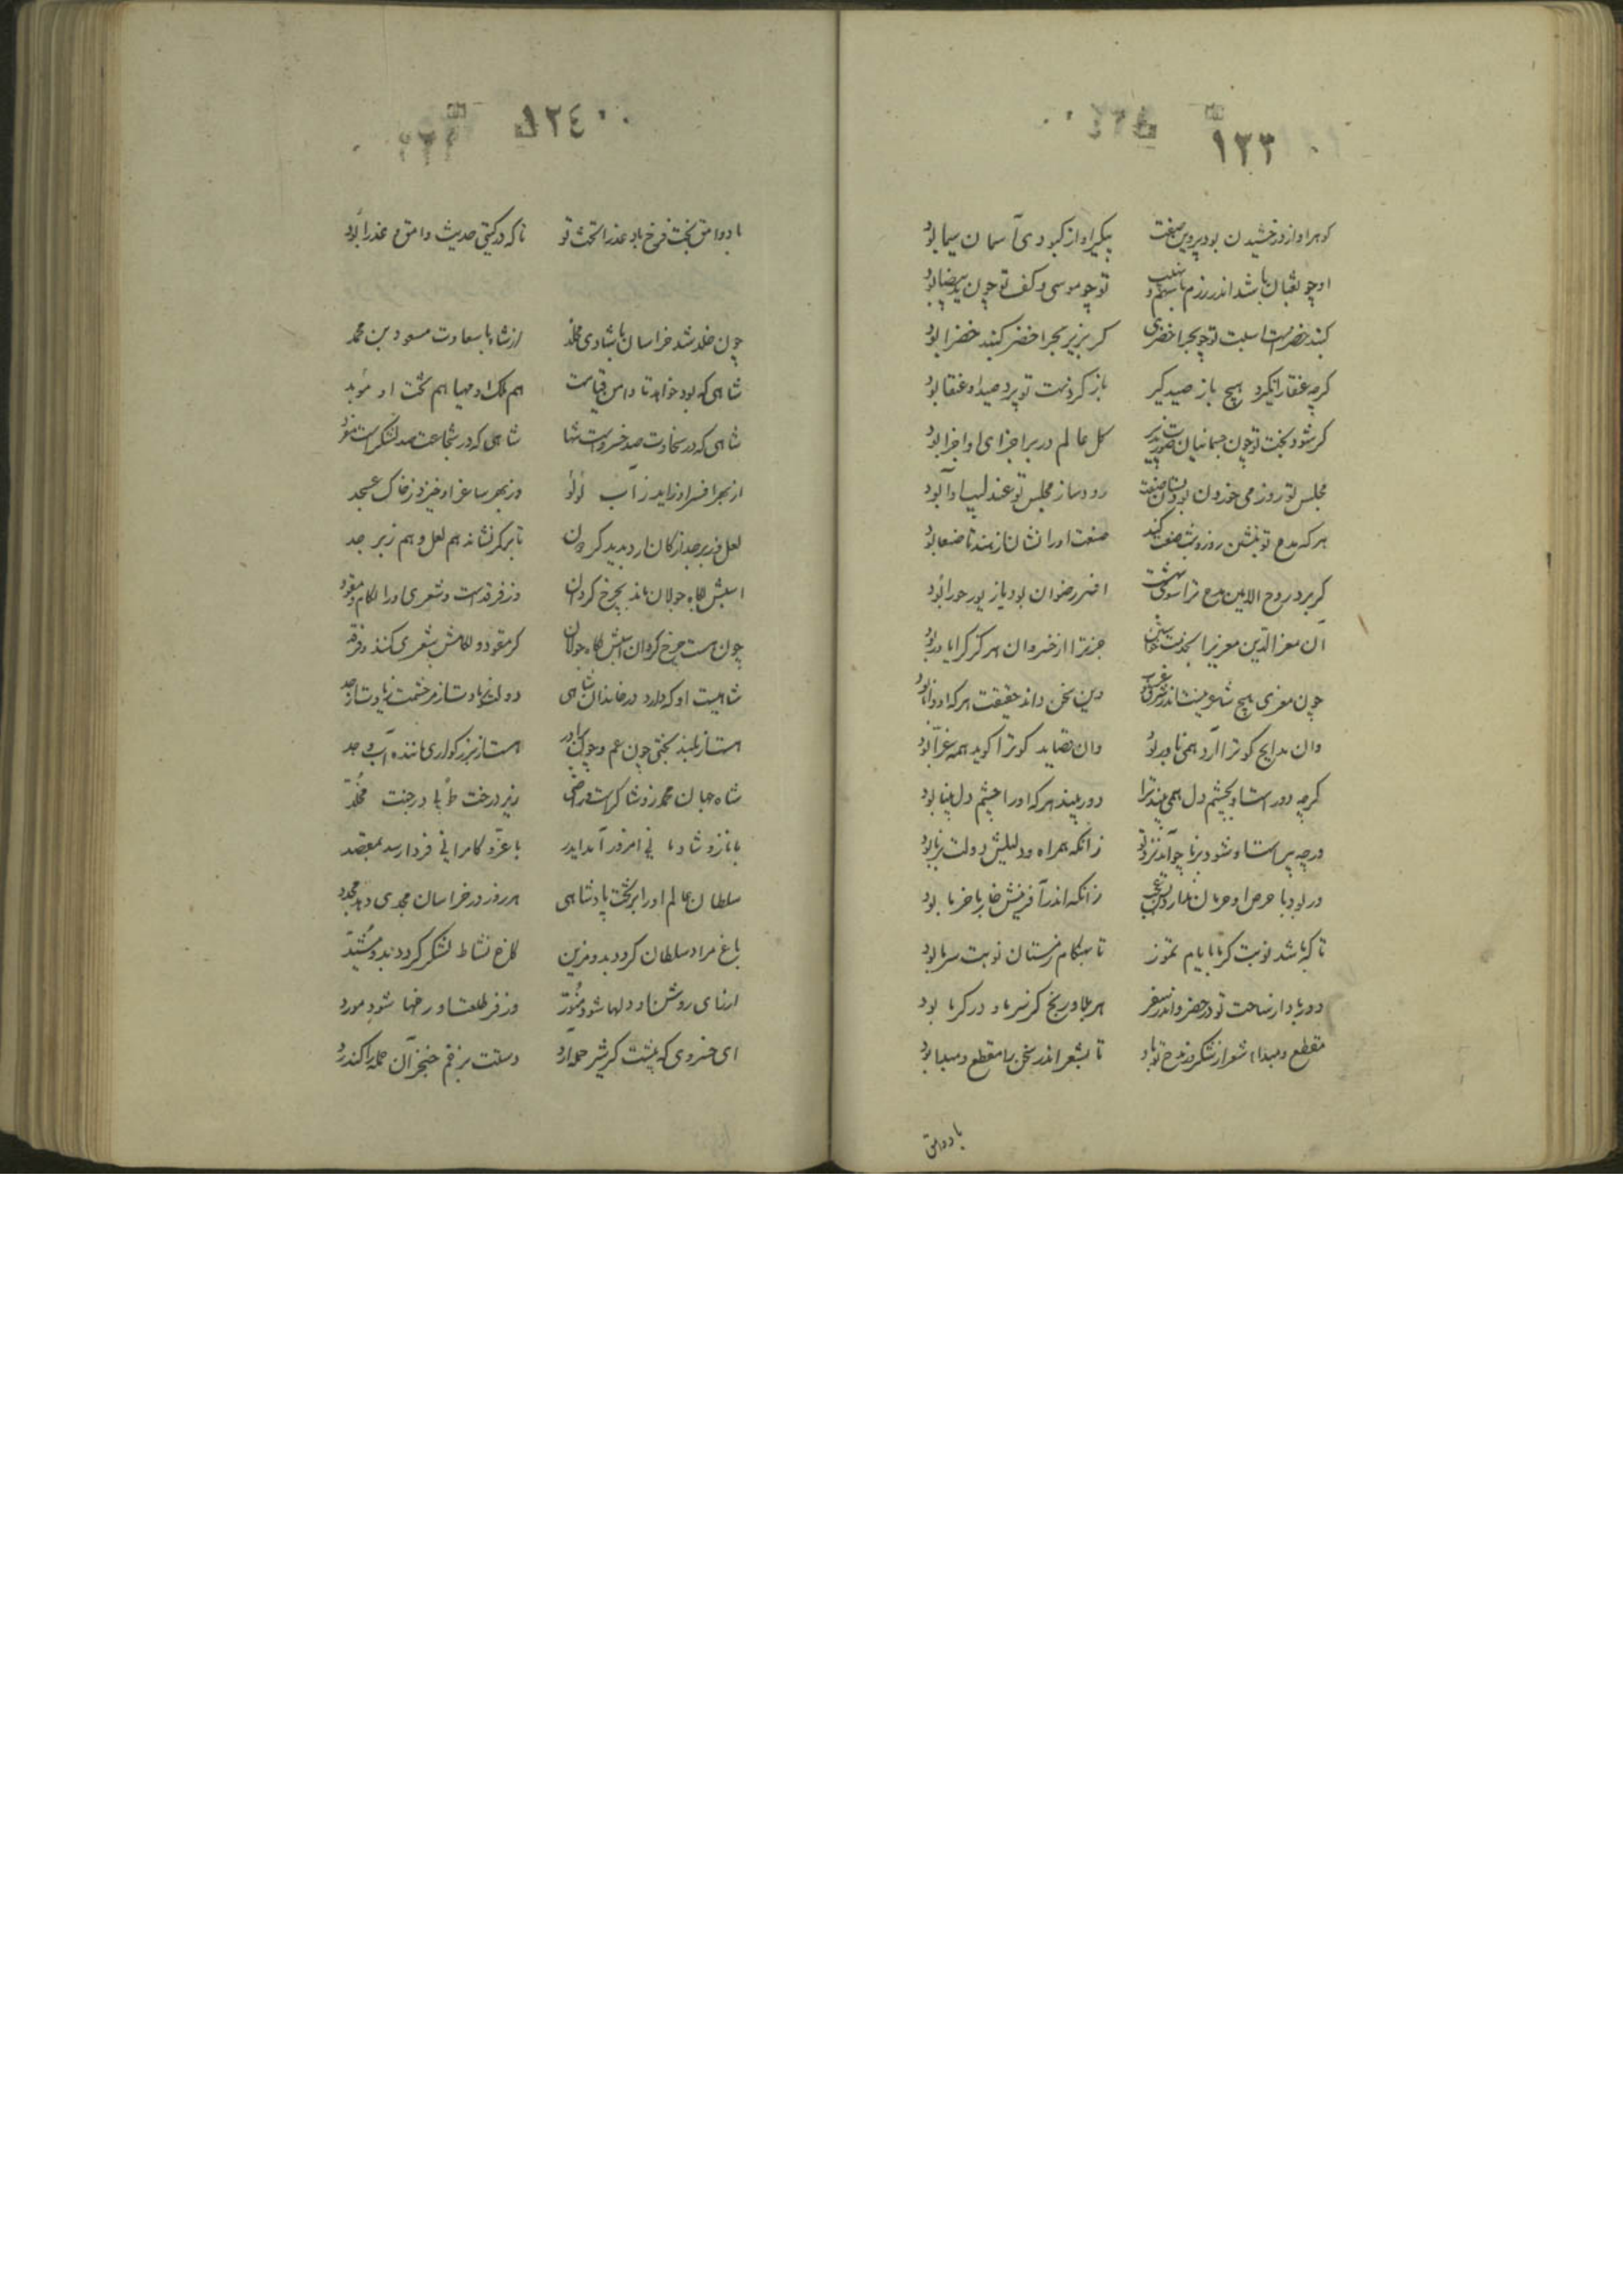 ١٢٣
گوهر او از درخشیدن بود پروین صفت پیکر او از کبودی آسمان سیما بود
او چو ثعبان باشد اندر رزم با سهم و نهیب تو چو موسی و کف تو چون ید بیضا بود
گنبد خضراست اسبت تو چو بحر اخضری گر بزیر بحر اخضر گنبد خضرا بود
گرچه عنقا را نگیرد هیچ باز صیدگیر باز گر همت تو پرد صید او عنقا بود
گر شود بخت تو چون جسمانیان صورت پذیر کل عالم در بر اجزای او اجزا بود
مجلس تو روز می خوردن بود بستان صفت رودساز مجلس تو عندلیب آوا بود
هر که مدح تو نبشتن روز و شب صنعت کند صنعت او را نشان از مسند تا صنعا بود
گر برد روح الامین مدح ترا سوی بهشت افسر رضوان بود یا زیور حورا بود
آن معزالدین معزی را بخدمت جز ترا از خسروان هرگز کرا یارا بود
چون معزی هیچ شاعر نیست اندر شرق و غرب این سخن داند حقیقت هر که او دانا بود
وان مدایح کو ترا آرد همی نادر بود وان قصاید کو ترا گوید همه غرّا بود
گرچه دور است او بچشم دل همی بیند ترا دوربیند هر که او را چشم دل بینا بود
ورچه پیر است او شود برنا چو آمد نزد تو زانکه همراه و دلیلش دولت برنا بود
ور بود با حرص او حرمان مدار از وی عجب زانکه اندر آفرینش خار با خرما بود
تا که باشد نوبت گرما بایام تموز تا بهنگام زمستان نوبت سرما بود
دور باد از ساحت تو در حضر و اندر سفر هر بلا و رنج کز سرما و در گرما بود
مقطع و مبداء شعر از شکر و مدح تو باد تا بشعر اندر سخن با مقطع و مبدا بود
با دوامق
١٢٤
با دوامق بخت فرخ باد و عذرا تخت تو تا که در گیتی حدیث وامق و عذرا بود
چون خلد شد خراسان باشادی مخلد از شاه با سعادت مسعود بن محمد
شاهی که بود خواهد تا دامن قیامت هم ملک او مهیا هم تخت او مؤبد
شاهی که در سخاوت صد خسرو است تنها شاهی که در شجاعت صد لشکر است مفرد
از بهر افسر او زاید ز آب لؤلؤ وز بهر ساغر او خیزد ز خاک عسجد
لعل و زبرجد از کان ارد پدید گردون تا بر کمر نشاند هم لعل و هم زبرجد
اسبش بگاه جولان ماند بچرخ گردان وز فرقد است و شعری او را لگام و مقود
چون هست چرخ گردان اسبش بگاه جولان گر مقود و لگامش شعری کند و فرقد
شاهیست او که دارد در خاندان شاهی دولت زیادت از مر حشمت زیادت از حد
هست از بلند بختی چون عم و چون برادر هست از بزرگواری ماننده اب و جد
شاه جهان محمد زو شاکر است و راضی زیر درخت طوبا در جنت مخلّد
با ناز و شادمانی امروز آمد ایدر با عزّ و کامرانی فردا رسد بمقصد
سلطان عالم او را بر تخت پادشاهی هر روز در خراسان مجدی دهد مجدد
باغ مراد سلطان گردد بدو مزین کاخ نشاط لشکر گردد بدو مشیّد
از رای روشن او دلها شود منوّر وز فر طلعت او رخها شود مورد
ای خسروی که پیشت گر شیر حمله آرد دستت بزخم خنجر آن حمله را کند رد